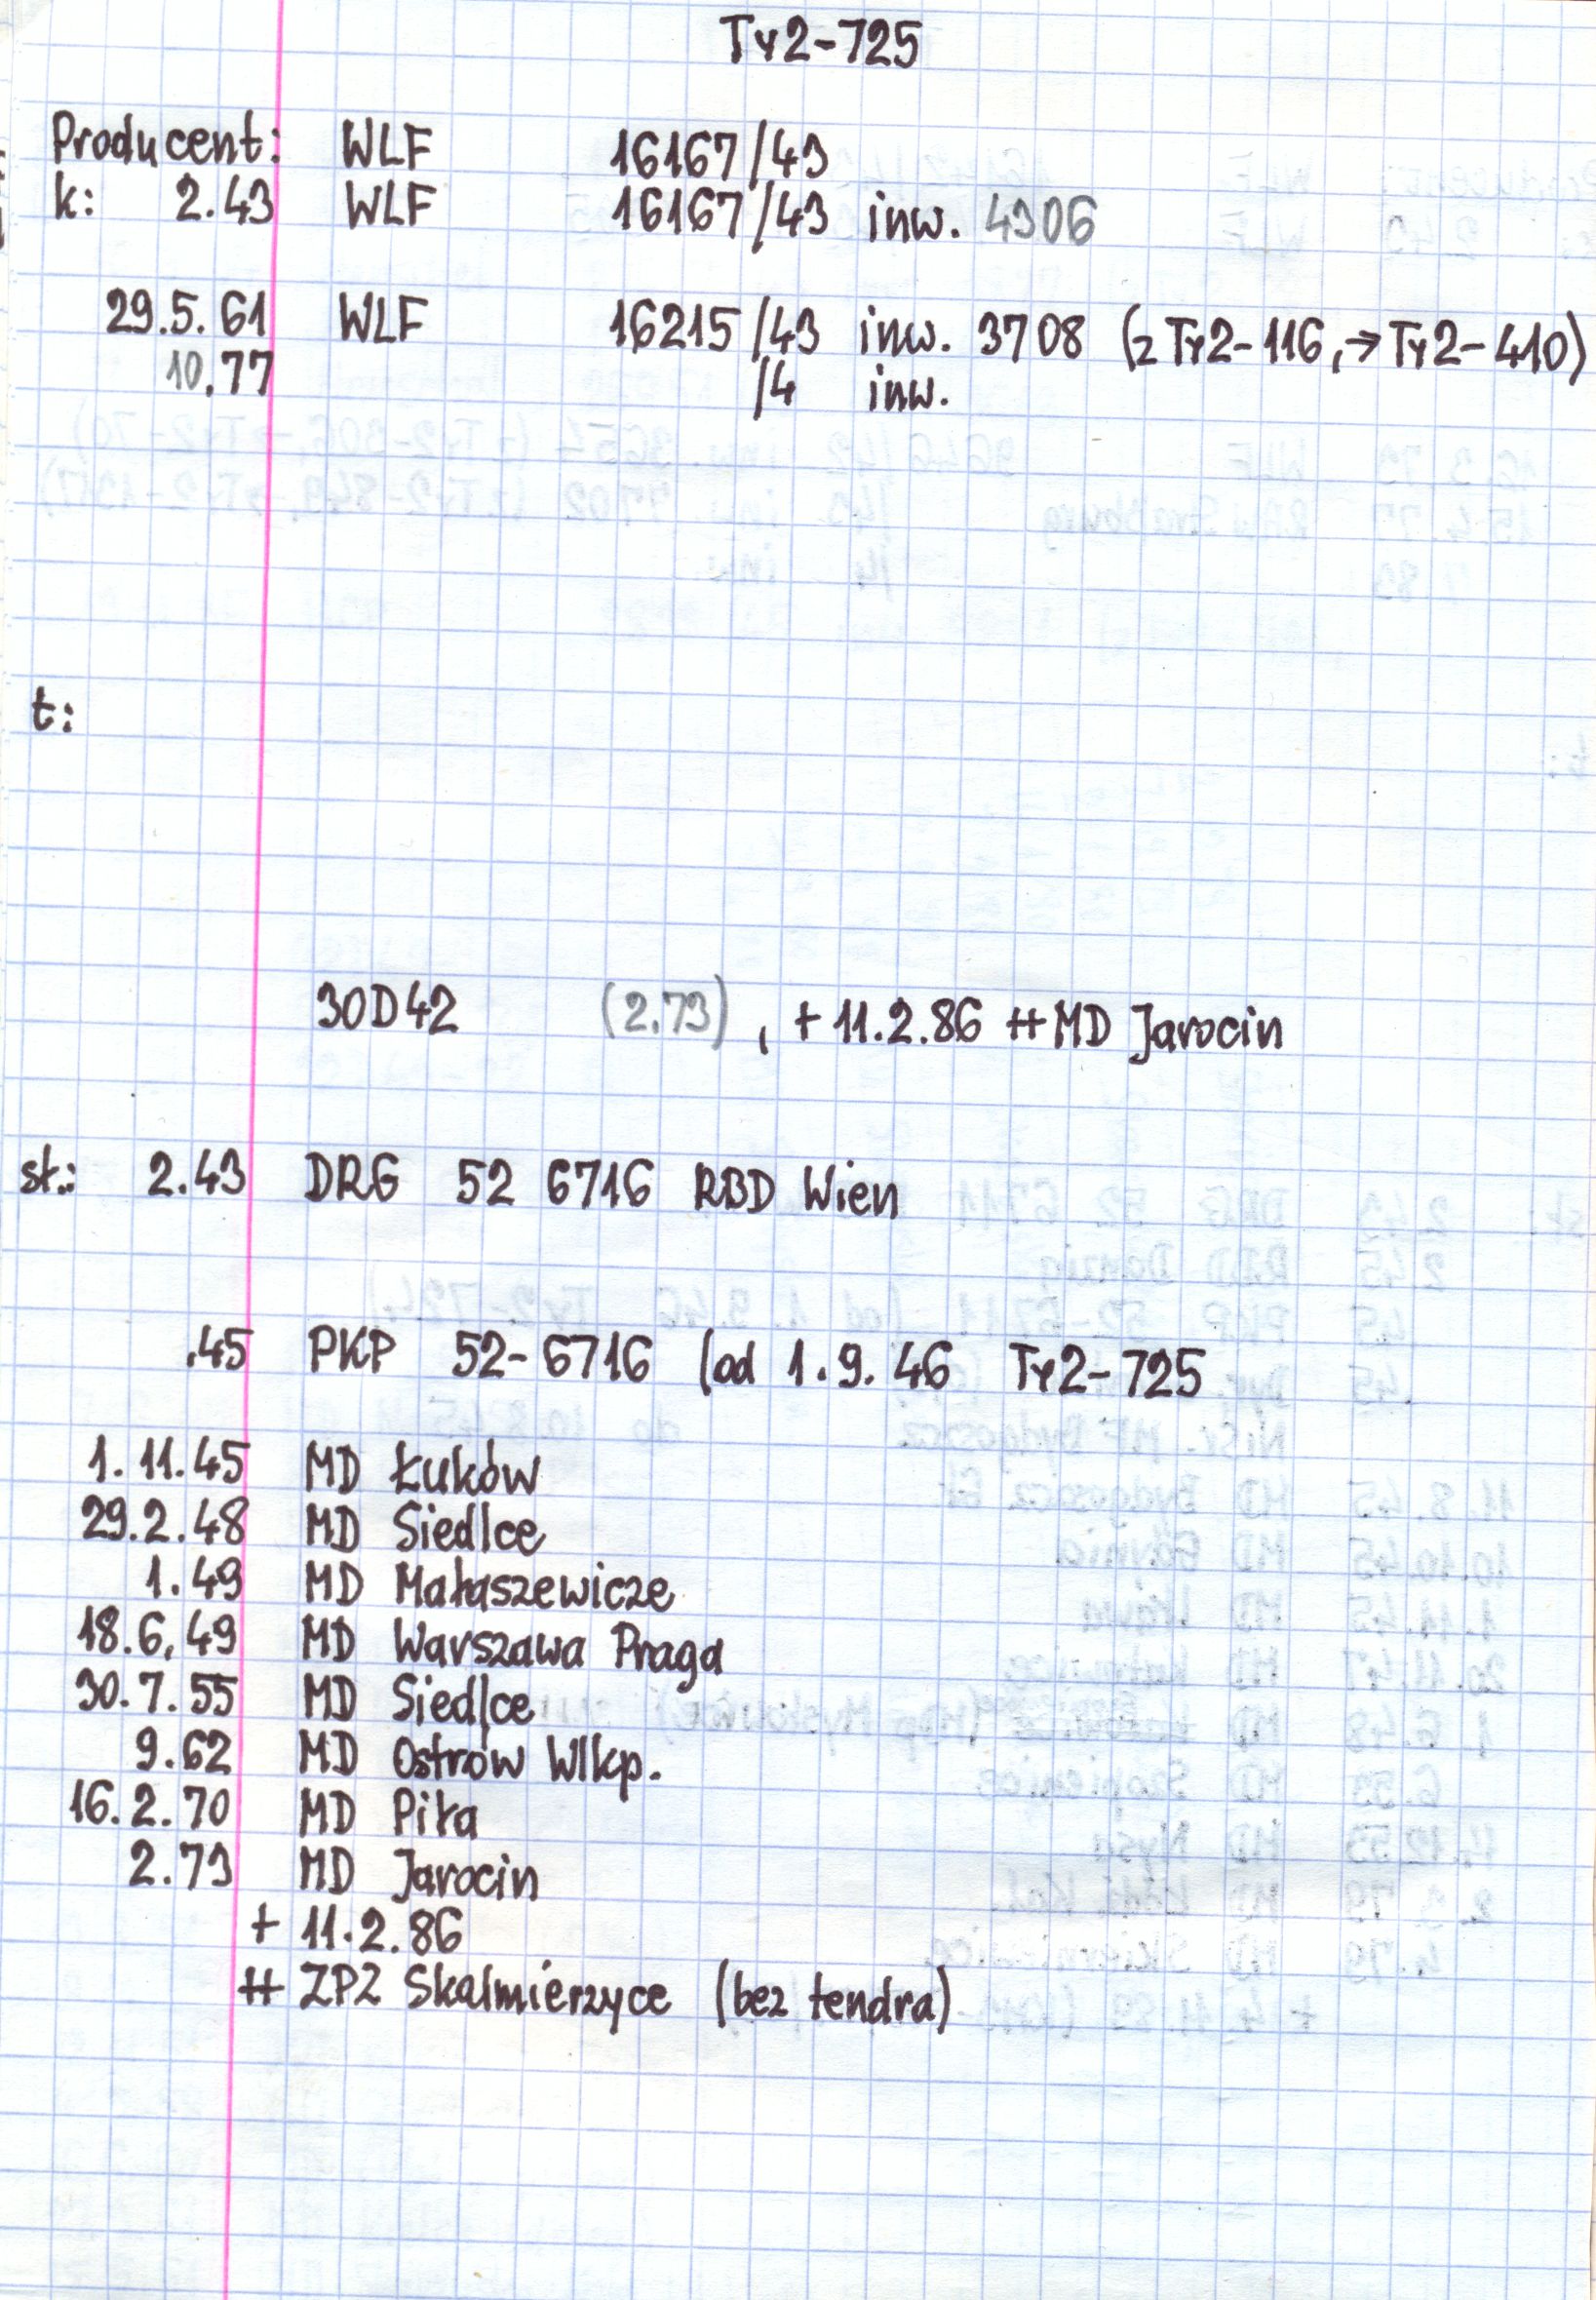 Ty2-725
Producent: WLF 16167/43
k: 2.43 WLF 16167/43 inw. 4306
29.5.61 WLF 16215/43 inw. 3708 (z Ty2-116, → Ty2-410)
10.77 /4 inw.
t:
30D42 (2.73), + 11.2.86 ++ MD Jarocin
st.: 2.43 DRG 52 6716 RBD Wien
.45 PKP 52-6716 (od 1.9.46 Ty2-725
1.11.45 MD Łuków
29.2.48 MD Siedlce
1.49 MD Małaszewicze
18.6.49 MD Warszawa Praga
30.7.55 MD Siedlce
9.62 MD Ostrów Wlkp.
16.2.70 MD Piła
2.73 MD Jarocin
+ 11.2.86
++ ZPZ Skalmierzyce (bez tendra)